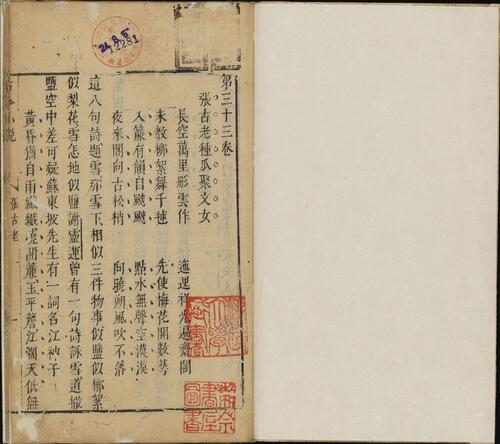 第三十三卷
張古老種瓜娶文女
長空萬里彤雲作 迤邐祥光遍齋閣
未教柳絮舞千毬 先使梅花開數萼
入簾有韻自颼颼 點水無聲空漠漠
夜來閣向古松梢 向曉朔風吹不落
這八句詩題雪那雪下相似三件物事似鹽似柳絮
似梨花雪怎地似鹽謝靈運曾有一句詩詠雪道撒
鹽空中差可疑蘇東坡先生有一詞名江神子
黃昏猶自雨纖纖曉開簾玉平簷江濶天低無
古今小說 張古老 一
12281